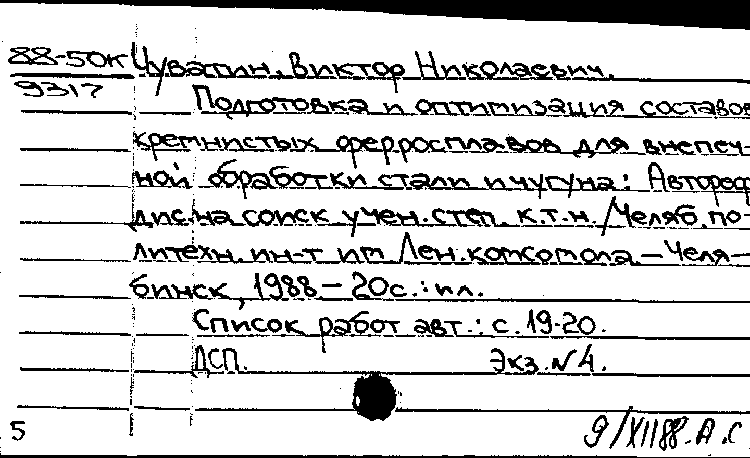 88-50к Чуватин, Виктор Николаевич.
9317
Подготовка и оптимизация составов
кремнистых ферросплавов для внепеч-
ной обработки стали и чугуна: Автореф
дис.на соиск учен.степ. к.т.н./Челяб.по-
литехн.ин-т им Лен.комсомола.-Челя-
бинск, 1988-20с.:ил.
Список работ авт.: с. 19-20.
ДСП. Экз.N4.
5 9/XII88.А.С